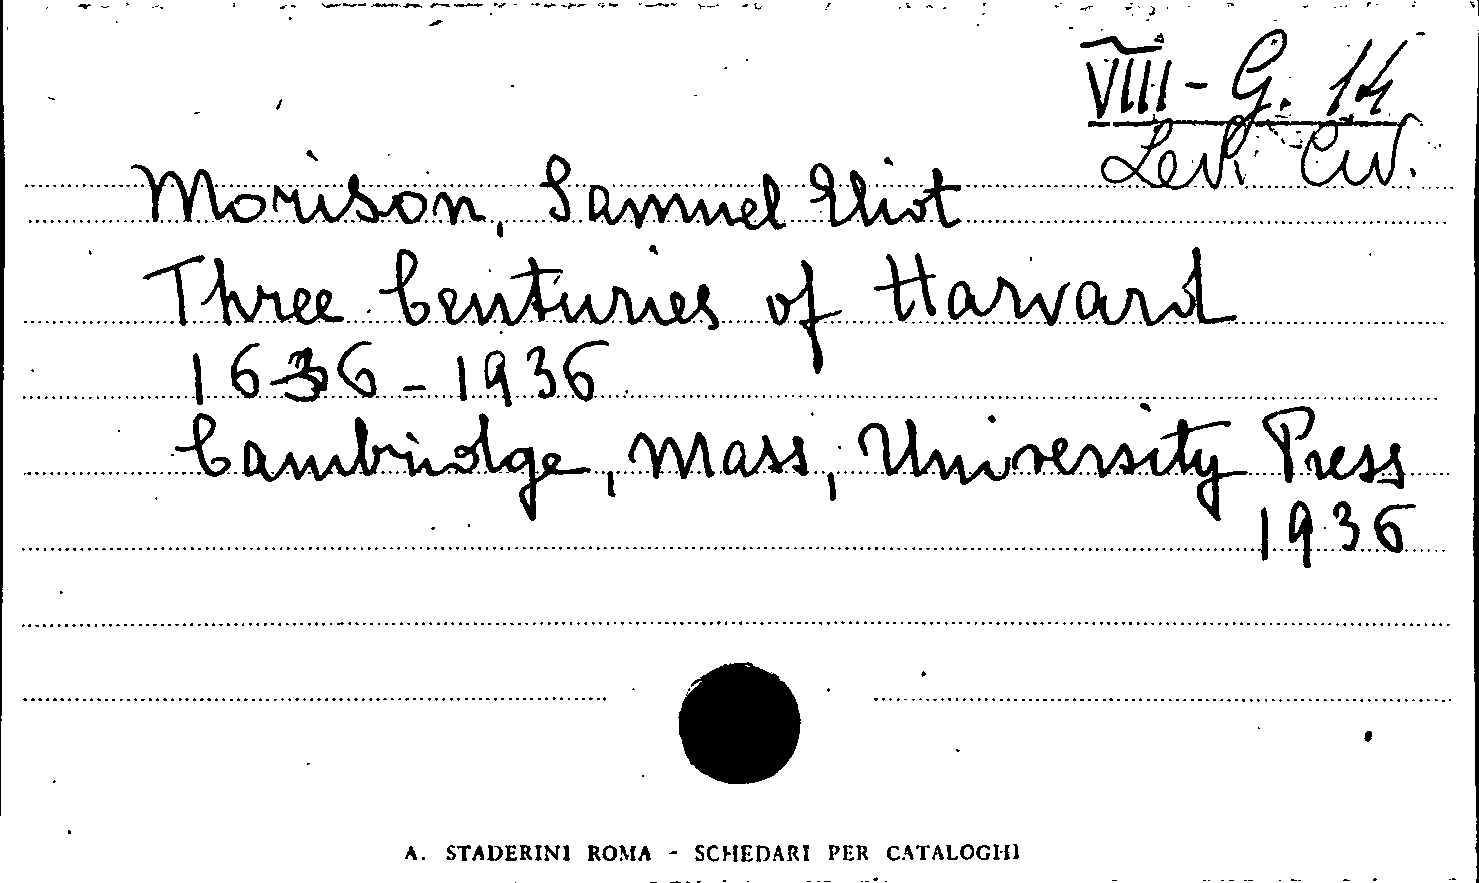 VIII - G. 14
Lev. Civ.
Morison, Samuel Eliot
Three Centuries of Harvard
1636-1936
Cambridge, Mass, University Press
1936
A. STADERINI ROMA - SCHEDARI PER CATALOGHI